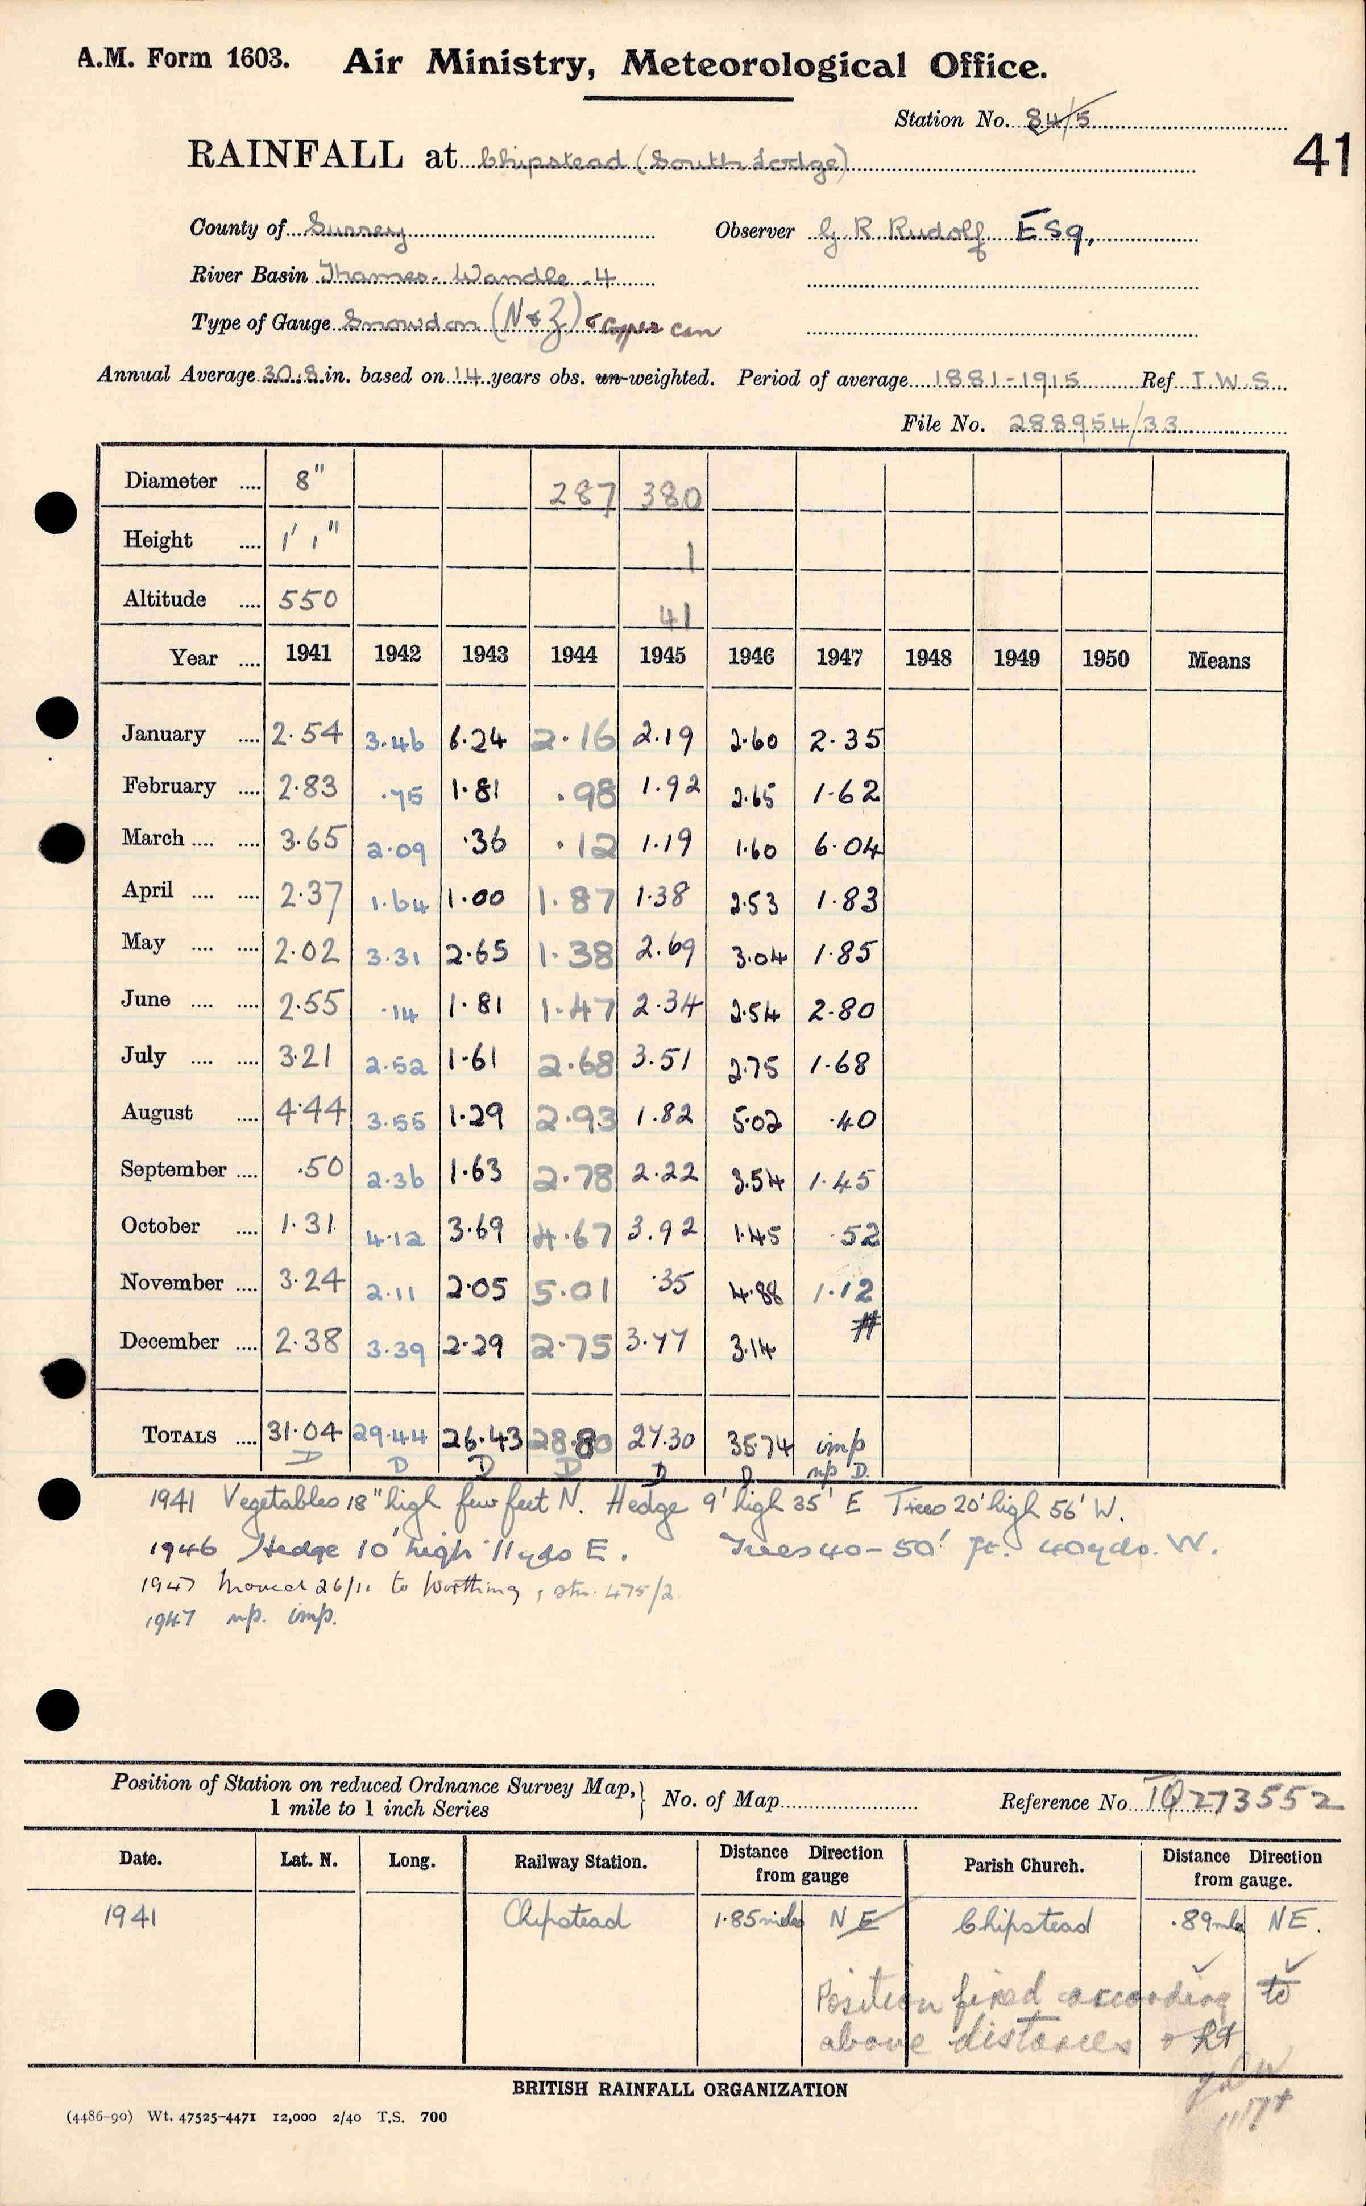 A.M. Form 1603. Air Ministry, Meteorological Office.
Station No. 84/5
41
RAINFALL at Chipstead (South Lodge)
County of Surrey Observer G R Rudolf ESq.
River Basin Thames. Wandle. 4
Type of Gauge Snowdon (N & Z) & copper can
Annual Average 30.8 in. based on 14 years obs. un-weighted. Period of average 1881-1915 Ref I.W.S
File No. 288954/33
Diameter .... 8" 287 380
Height .... 1' 1" 1
Altitude .... 550 41
Year .... 1941 1942 1943 1944 1945 1946 1947 1948 1949 1950 Means
January .... 2.54 3.46 6.24 2.16 2.19 2.60 2.35
February .... 2.83 .75 1.81 .98 1.92 2.65 1.62
March .... .... 3.65 2.09 .36 .12 1.19 1.60 6.04
April .... .... 2.37 1.64 1.00 1.87 1.38 2.53 1.83
May .... .... 2.02 3.31 2.65 1.38 2.69 3.04 1.85
June .... .... 2.55 .14 1.81 1.47 2.34 2.54 2.80
July .... .... 3.21 2.52 1.61 2.68 3.51 2.75 1.68
August .... 4.44 3.55 1.29 2.93 1.82 5.02 .40
September .... .50 2.36 1.63 2.78 2.22 3.54 1.45
October .... 1.31 4.12 3.69 4.67 3.92 1.45 .52
November .... 3.24 2.11 2.05 5.01 .35 4.88 1.12
December .... 2.38 3.39 2.29 2.75 3.77 3.14 #
TOTALS .... 31.04 29.44 26.43 28.80 27.30 35.74 imp
D D D D D D np D.
1941 Vegetables 18" high few feet N. Hedge 9' high 35' E Trees 20' high 56' W.
1946 Hedge 10' high 11 yds E. Trees 40-50' ft. 40 yds. W.
1947 Moved 26/11 to Worthing, stn. 475/2
1947 np. imp.
Position of Station on reduced Ordnance Survey Map, 1 mile to 1 inch Series } No. of Map Reference No. TQ 273552
Date. Lat. N. Long. Railway Station. Distance Direction from gauge Parish Church. Distance Direction from gauge.
1941 Chipstead 1.85 miles NE Chipstead .89 mls NE.
Position fixed according to
above distances & ht
BRITISH RAINFALL ORGANIZATION
(4486-90) Wt. 47525-4471 12,000 2/40 T.S. 700